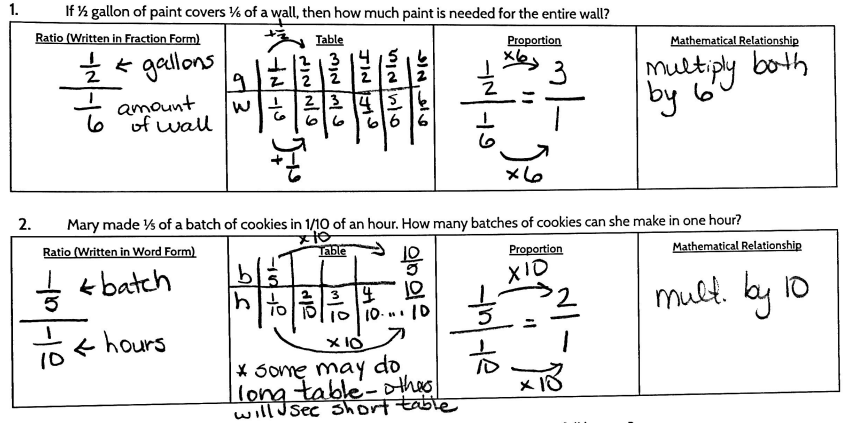 1. If ½ gallon of paint covers ⅙ of a wall, then how much paint is needed for the entire wall?
Ratio (Written in Fraction Form)
1/2 ← gallons
1/6 amount
of wall
Table
+1/2
g 1/2 2/2 3/2 4/2 5/2 6/2
w 1/6 2/6 3/6 4/6 5/6 6/6
+1/6
Proportion
x6
1/2 / 1/6 = 3/1
x6
Mathematical Relationship
multiply both
by 6
2. Mary made ⅕ of a batch of cookies in 1/10 of an hour. How many batches of cookies can she make in one hour?
Ratio (Written in Word Form)
1/5 ← batch
1/10 ← hours
x10
Table
b 1/5 10/5
h 1/10 2/10 3/10 4/10 .... 10/10
x10
* some may do
long table - others
will see short table
Proportion
x10
1/5 / 1/10 = 2/1
x10
Mathematical Relationship
mult. by 10